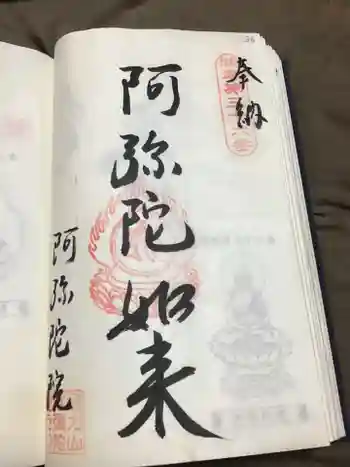 奉納
阿弥陀如来
阿弥陀院